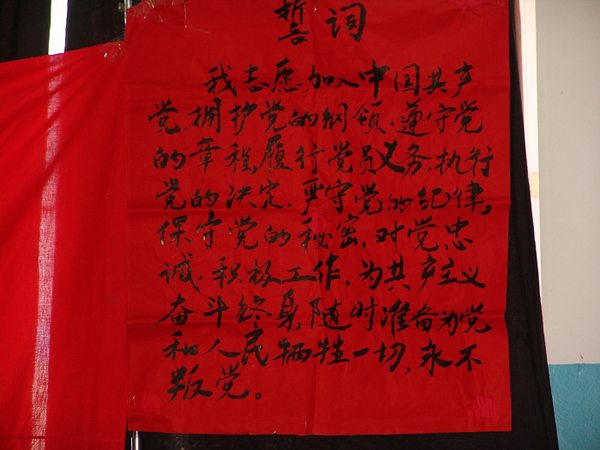 誓词
我志愿加入中国共产
党，拥护党的纲领，遵守党
的章程，履行党员义务，执行
党的决定，严守党的纪律，
保守党的秘密，对党忠
诚，积极工作，为共产主义
奋斗终身，随时准备为党
和人民牺牲一切，永不
叛党。